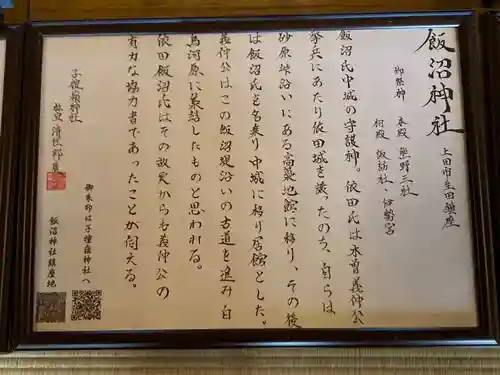 飯沼神社
上田市生田鎮座
御祭神 本殿 熊野三社
相殿 諏訪社、伊勢宮
飯沼氏中城の守護神。依田氏は木曽義仲公
挙兵にあたり依田城を譲ったのち、自らは
砂原峠沿いにある高築地館に移り、その後
は飯沼氏を名乗り中城に移り居館とした。
義仲公はこの飯沼堤沿いの古道を進み白
鳥河原に集結したものと思われる。
依田飯沼氏はその故実からも義仲公の
有力な協力者であったことが伺える。
子檀嶺神社
御朱印は子檀嶺神社へ
飯沼神社鎮座地